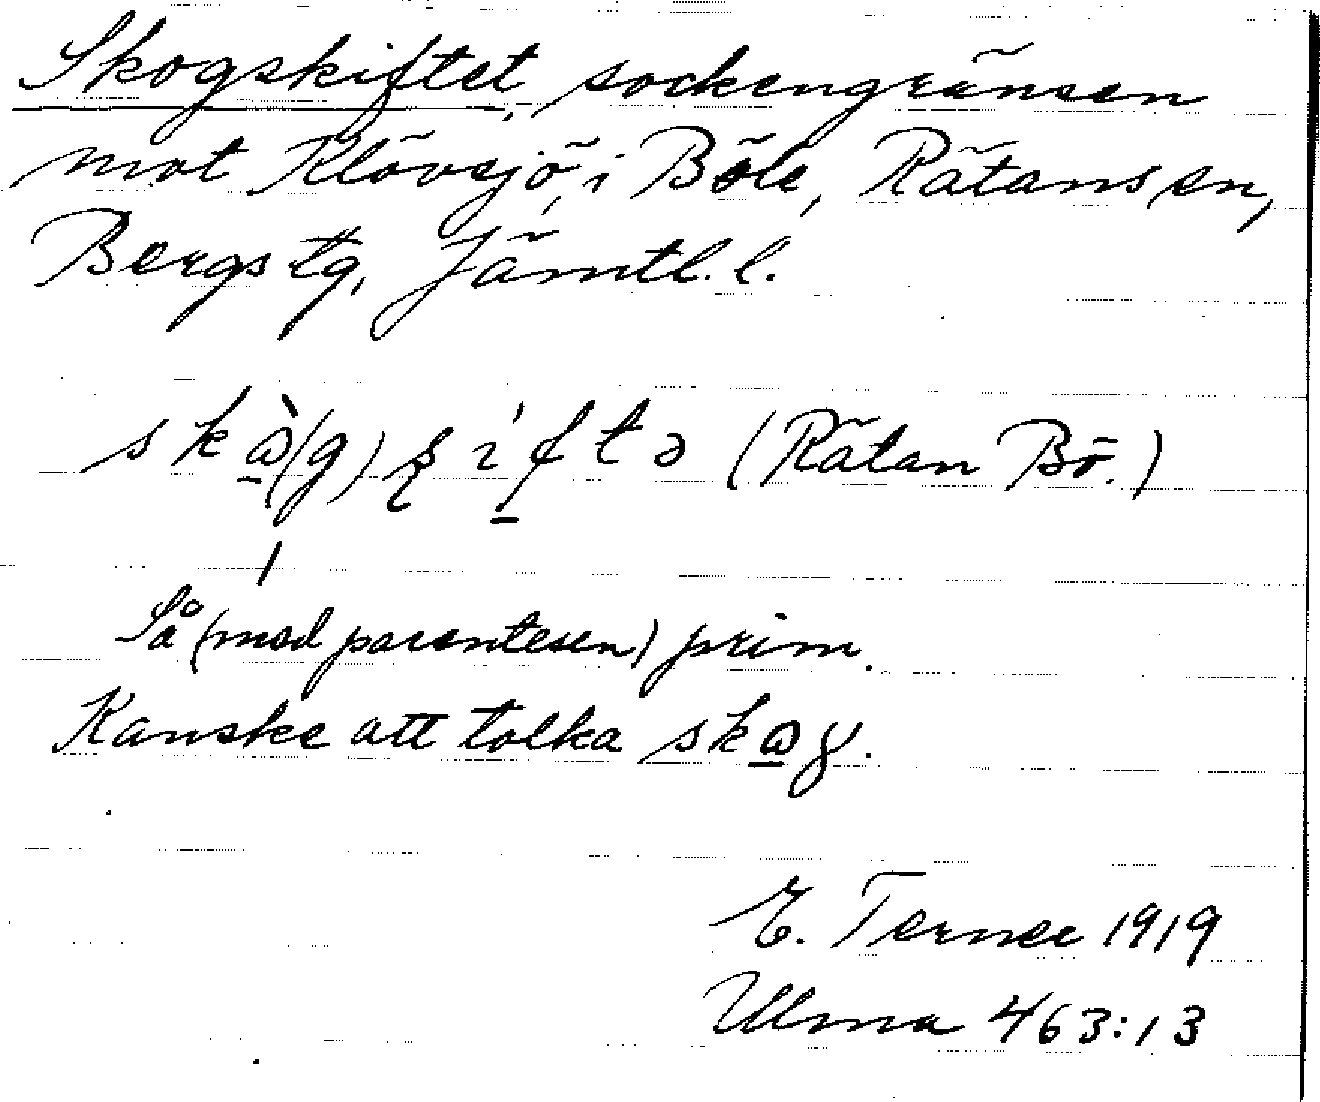 Skogskiftet, sockengränsen
mot Klövsjö, i Böle, Rätans sn,
Bergs tg, Jämtl. l.
(Rätan Bö.)
Så (med parentesen) prim.
Kanske att tolka
E. Terner 1919
Ulma 463:13